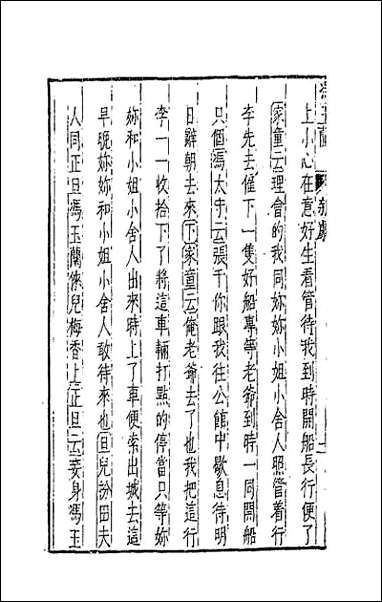 馮玉蘭　雜劇
上小心在意好生看管待我到時開船長行便了
家童云理會的我同妳妳小姐小舍人照管着行
李先去僱下一隻好船專等老爺到時一同開船
只個馮太守云張千你跟我往公館中歇息待明
日辭朝去來下家童云俺老爺去了也我把這行
李一一收拾下了將這車輛打點的停當只等妳
妳和小姐小舍人出來時上了車便索出城去這
早晚妳妳和小姐小舍人敢待來也旦兒扮田夫
人同正旦馮玉蘭俫兒梅香上正旦云妾身馮玉